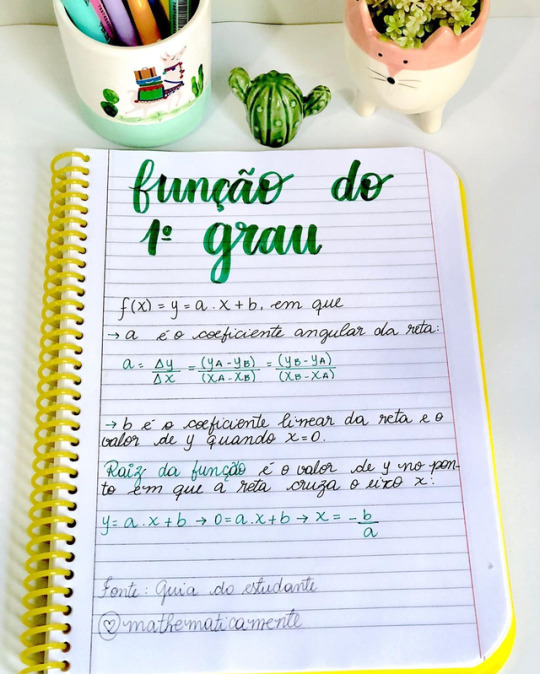 função do
1º grau
f(x) = y = a . x + b, em que
→ a é o coeficiente angular da reta:
a = Δy/Δx = (yA - yB)/(xA - xB) = (yB - yA)/(xB - xA)
→ b é o coeficiente linear da reta e o
valor de y quando x=0.
Raiz da função é o valor de y no pon-
to em que a reta cruza o eixo x:
y = a . x + b → 0 = a . x + b → x = -b/a
Fonte: Guia do estudante
mathematicamente